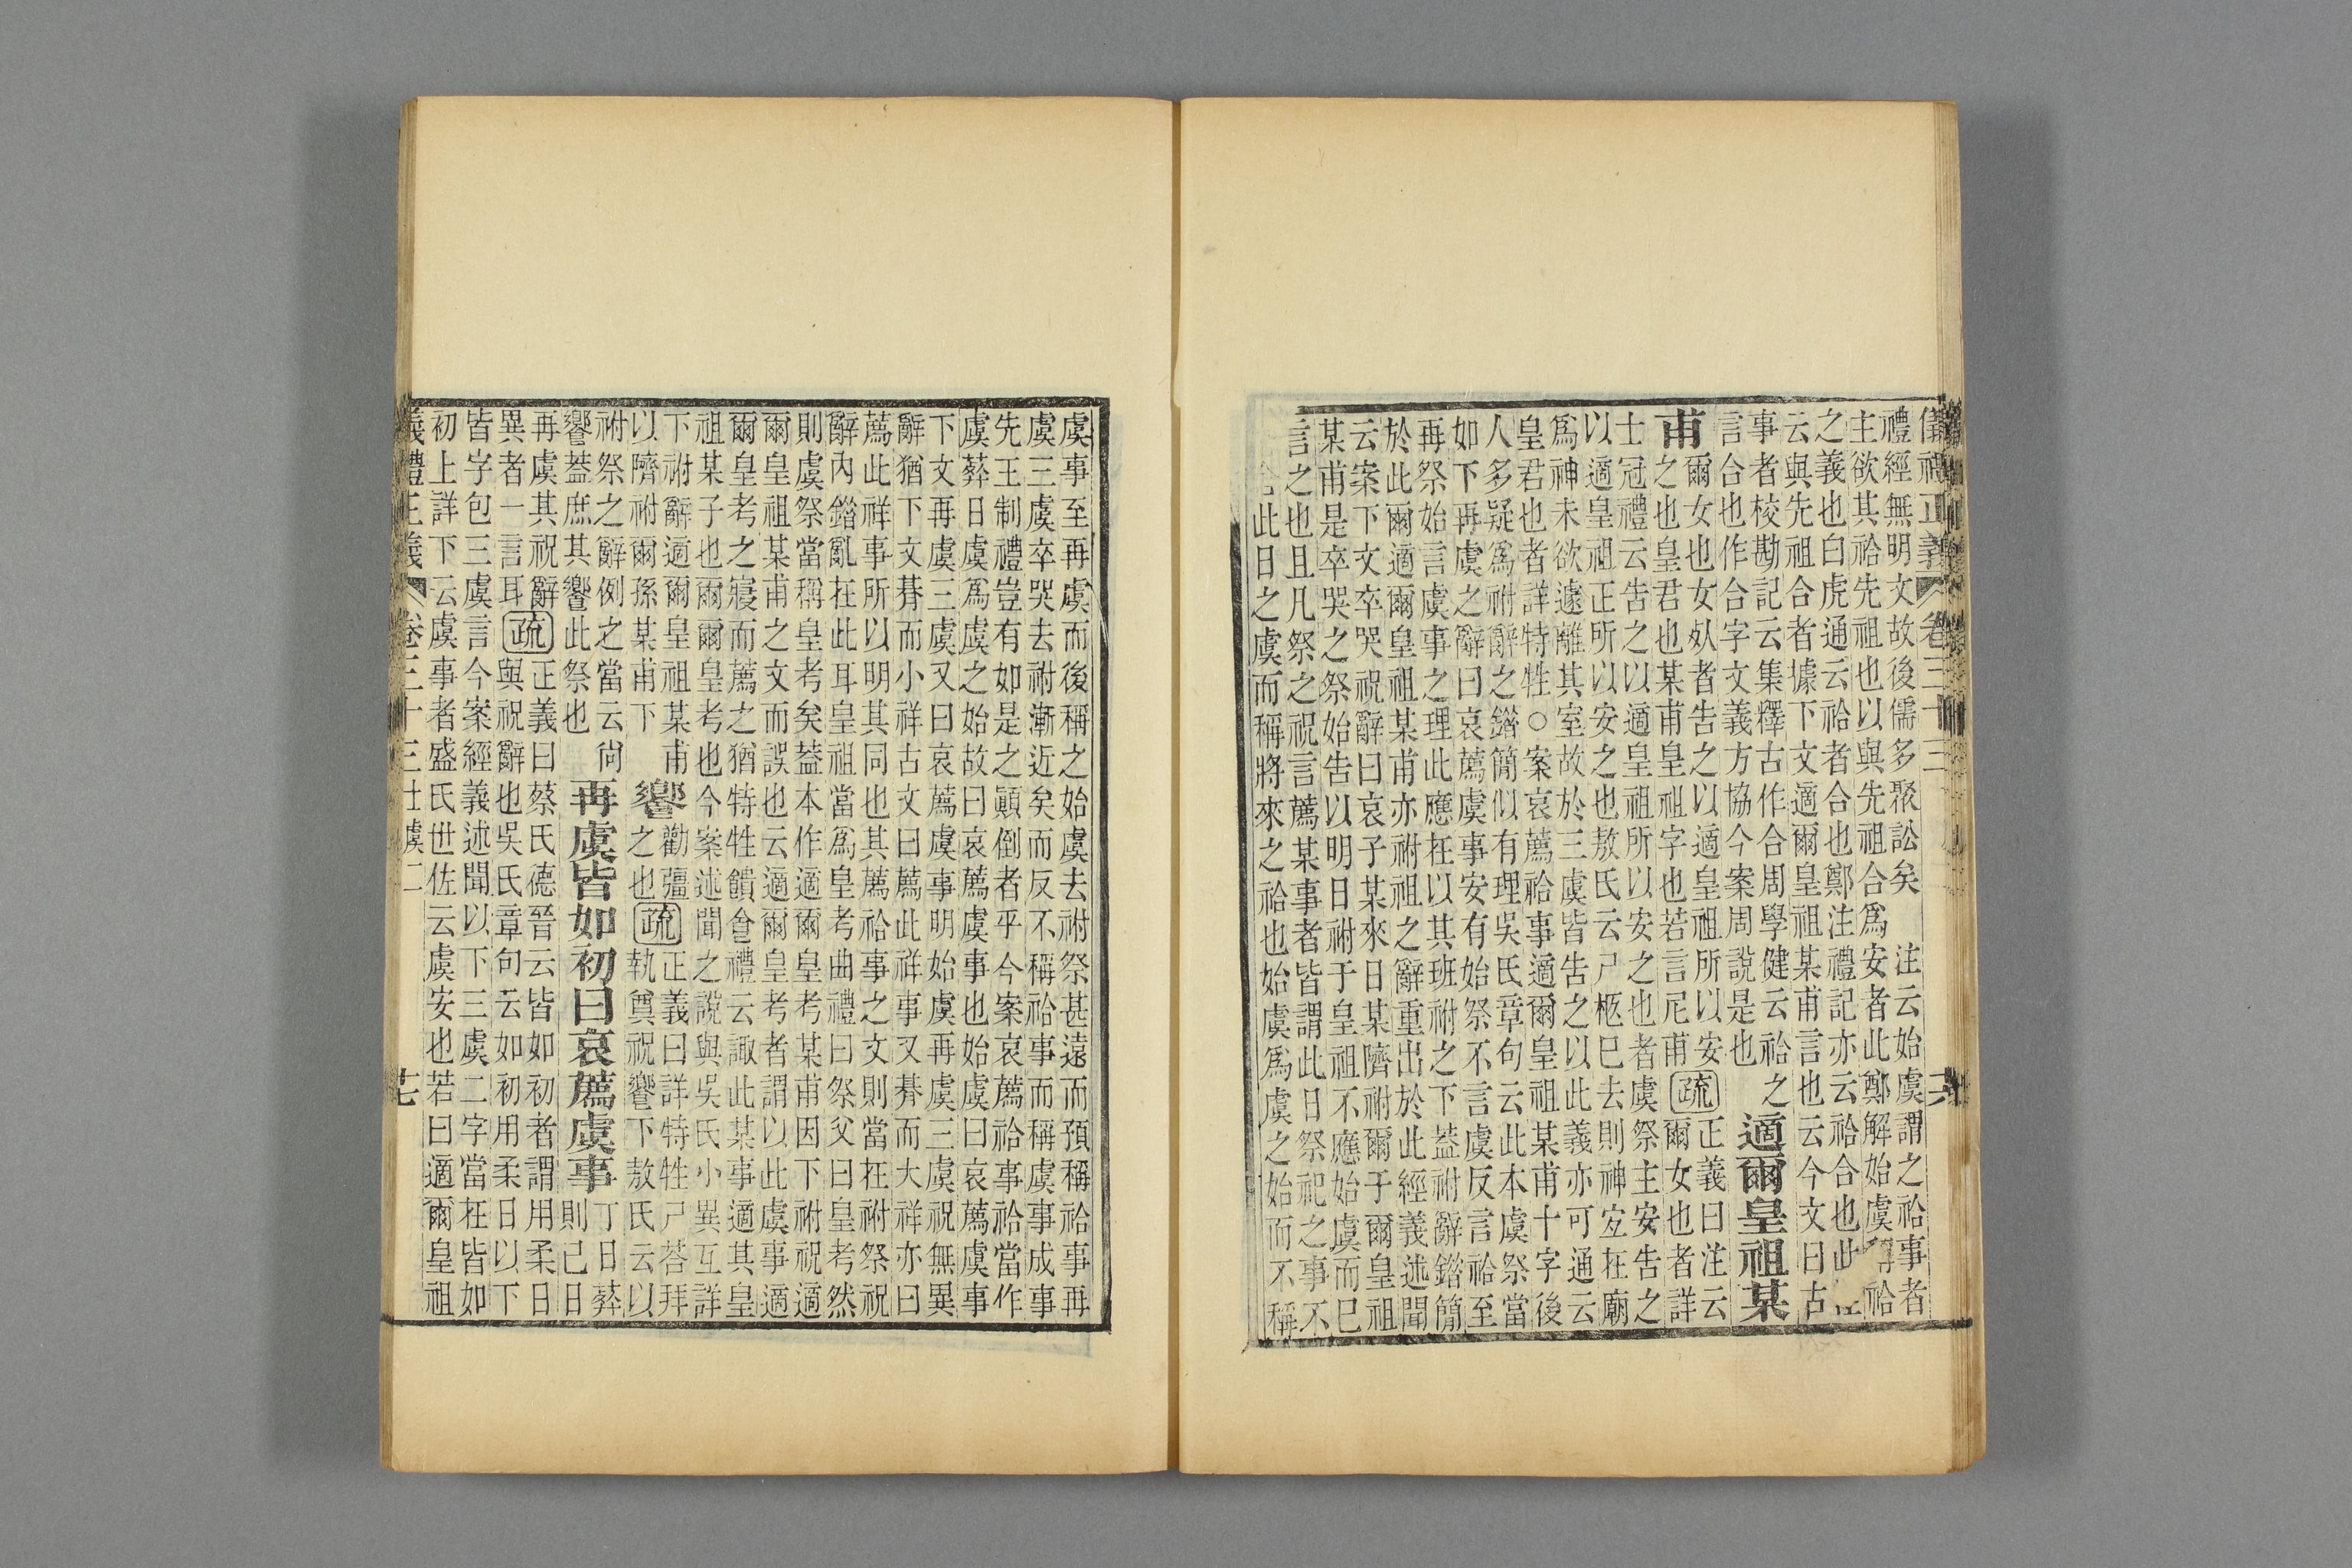 儀禮正義 卷三十三 六
禮經無明文故後儒多聚訟矣 注云始虞謂之祫事者
主欲其祫先祖也以與先祖合爲安者此鄭解始虞祫
之義也白虎通云祫者合也鄭注禮記亦云祫合也此
云與先祖合者據下文適爾皇祖某甫言也云今文曰古
事者校勘記云集釋古作合周學健云祫之
言合也作合字文義方協今案周說是也
適爾皇祖某
甫
爾女也女奴者告之以適皇祖所以安
之也皇君也某甫皇祖字也若言尼甫
疏
正義曰注云
爾女也者詳
士冠禮云告之以適皇祖所以安之也者虞祭主安告之
以適皇祖正所以安之也敖氏云尸柩已去則神宜在廟
爲神未欲遽離其室故於三虞皆告之以此義亦可通云
皇君也者詳特牲○案哀薦祫事適爾皇祖某甫十字後
人多疑爲祔辭之錯簡似有理吳氏章句云此本虞祭當
如下再虞之辭曰哀薦虞事安有始祭不言虞反言祫至
再祭始言虞事之理此應在以其班祔之下葢祔辭錯簡
於此爾適爾皇祖某甫亦祔祖之辭重出於此經義述聞
云案下文卒哭祝辭曰哀子某來日某隮祔爾于爾皇祖
某甫是卒哭之祭始告以明日祔于皇祖不應始虞而已
言之也且凡祭之祝言薦某事者皆謂此日祭祀之事不
此日之虞而稱將來之祫也始虞爲虞之始而不稱
虞事至再虞而後稱之始虞去祔祭甚遠而預稱祫事再
虞三虞卒哭去祔漸近矣而反不稱祫事而稱虞事成事
先王制禮豈有如是之顚倒者乎今案哀薦祫事祫當作
虞葬日虞爲虞之始故曰哀薦虞事也始虞曰哀薦虞事
下文再虞三虞又曰哀薦虞事明始虞再虞三虞祝無異
辭猶下文朞而小祥古文曰薦此祥事又朞而大祥亦曰
薦此祥事所以明其同也其薦祫事之文則當在祔祭祝
辭內錯亂在此耳皇祖當爲皇考曲禮曰祭父曰皇考然
則虞祭當稱皇考矣葢本作適爾皇考某甫因下祔祝適
爾皇祖某甫之文而誤也云適爾皇考者謂以此虞事適
爾皇考之寢而薦之猶特牲饋食禮云諏此某事適其皇
祖某子也爾爾皇考也今案述聞之說與吳氏小異互詳
下祔辭適爾皇祖某甫
以隮祔爾孫某甫下
饗
勸彊
之也
疏
正義曰詳特牲尸荅拜
執奠祝饗下敖氏云以
祔祭之辭例之當云尙
饗葢庶其饗此祭也
再虞皆如初曰哀薦虞事
丁日葬
則己日
再虞其祝辭
異者一言耳
疏
正義曰蔡氏德晉云皆如初者謂用柔日
與祝辭也吳氏章句云如初用柔日以下
皆字包三虞言今案經義述聞以下三虞二字當在皆如
初上詳下云虞事者盛氏世佐云虞安也若曰適爾皇祖
義禮正義 卷三十三士虞二 十七